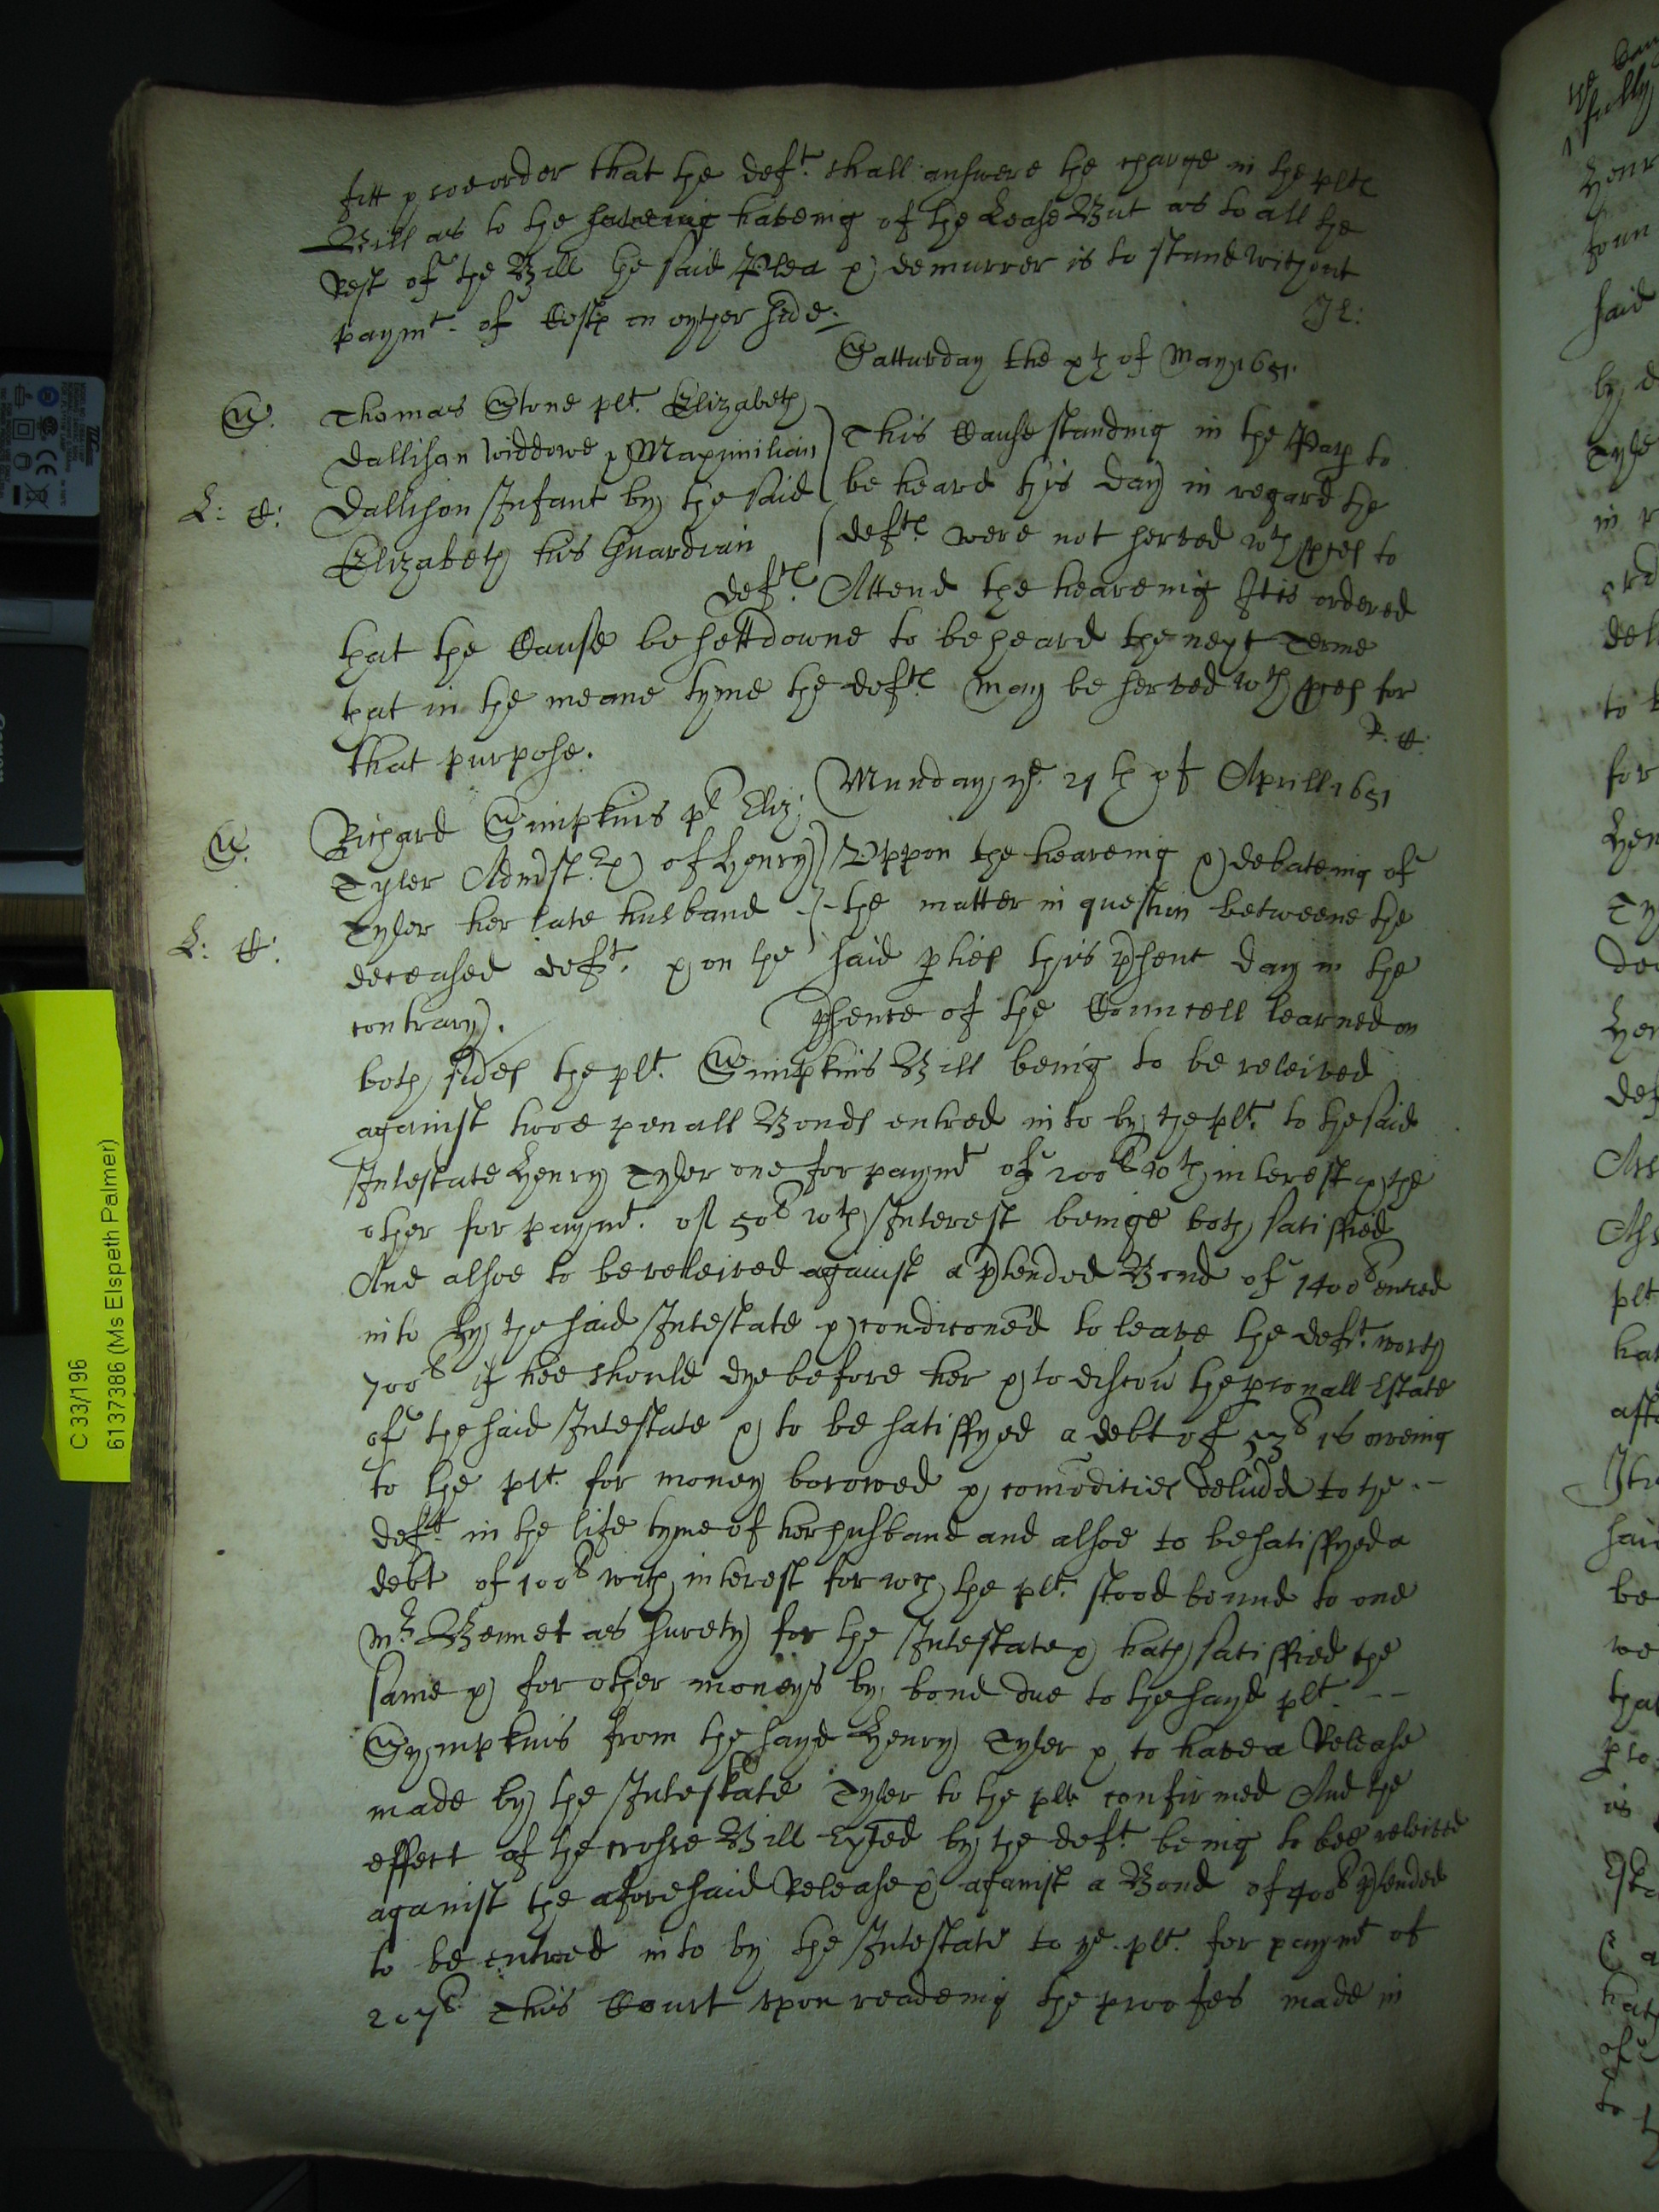 fitt & soe order that the deft. shall answere the charge in the plts
Bill as to the haveing of the Lease But as to all the
Rest of the Bill the said Plea & demurrer is to stand without
paymt. of Costs on eyther side
Satturday the xth of May 1651.
S. Thomas Stone plt. Elizabeth
Dallison Widdowe & Maximilian
L: C: Dallison Infant by the said
Elizabeth his Guardian
defts.
This Cause standing in the Pap to
be heard this day in regard the
defts were not served wth pces to
Attend the heareing It is ordered
that the Cause be sett downe to be heard the next Terme
that in the meane tyme the defts may be served wth pces for
that purpose.
R. C.
Munday ye. 21th of Aprill 1651
S. Richard Simpkins pl Eliz:
Tyler Admst. of Henry
Tyler her late husband
L: C: deceased deft. & on the
contrary.
Uppon the heareing & debateing of
the matter in question betweene the
said pties this psent day in the
psence of the Councell learned on
both sides the plt. Simpkins Bill being to be releived
against twoe penall Bonds entred into by the plt. to the said
Intestate Henry Tyler one for paymt of 200l wth interest & the
other for paymt. of 50l wth Interest beinge both satisfied
And alsoe to be releived against a ptended Bond of 1400l entred
into by the said Intestate & condiconed to leave the deft. worth
700l if hee should dye before her & to discou the psonall Estate
of the said Intestate & to be satisfyed a debt of 53l 1s oweing
to the plt. for money borowed & comodities delivd to the
deft. in the life tyme of her husband and alsoe to be satisfyed a
debt of 100l with interest for wch the plt. stood bound to one
Mr. Bennet as surety for the Intestate & hath satisfied the
same & for other moneys by bond due to the sayd plt.
Sympkins from the sayd Henry Tyler & to have a Release
made by the Intestate Tyler to the plt. confirmed And the
effect of the crosse Bill Exhted by the deft. being to bee releived
against the aforesaid Release & against a Bond of 400l ptended
to be entred into by the Intestate to ye. plt. for paymt of
207l. This Court upon readeing the proofes made in
C 33/196
61373 86 (Ms Elspeth Palmer)